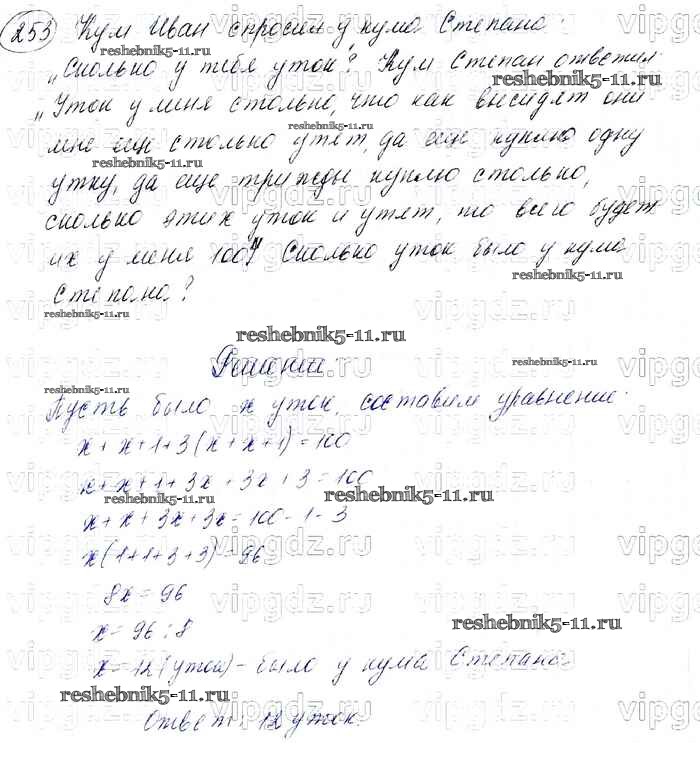 253 Кум Иван спросил у кума Степана:
„Сколько у тебя уток? Кум Степан ответил
„Уток у меня столько, что как высидят они
мне ещё столько утят, да ещё куплю одну
утку, да еще трижды куплю столько,
сколько этих уток и утят, то всего будет
их у меня 100". Сколько уток было у кума
Степана?
Решение.
Пусть было x уток, составим уравнение:
x + x + 1 + 3(x + x + 1) = 100
x + x + 1 + 3x + 3x + 3 = 100
x + x + 3x + 3x = 100 - 1 - 3
x(1+1+3+3) = 96
8x = 96
x = 96 : 8
x = 12 (уток) - было у кума Степана
Ответ: 12 уток.
reshebnik5-11.ru
vipgdz.ru